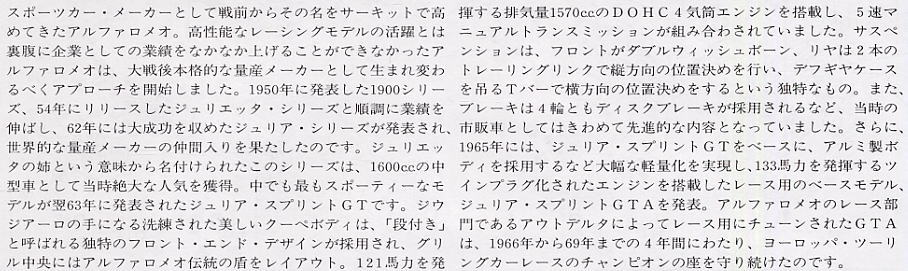 スポーツカー・メーカーとして戦前からその名をサーキットで高
めてきたアルファロメオ。高性能なレーシングモデルの活躍とは
裏腹に企業としての業績をなかなか上げることができなかったア
ルファロメオは、大戦後本格的な量産メーカーとして生まれ変わ
るべくアプローチを開始しました。1950年に発表した1900シリー
ズ、54年にリリースしたジュリエッタ・シリーズと順調に業績を
伸ばし、62年には大成功を収めたジュリア・シリーズが発表され、
世界的な量産メーカーの仲間入りを果たしたのです。ジュリエッ
タの姉という意味から名付けられたこのシリーズは、1600ccの中
型車として当時絶大な人気を獲得。中でも最もスポーティーなモ
デルが翌63年に発表されたジュリア・スプリントGTです。ジウ
ジアーロの手になる洗練された美しいクーペボディは、「段付き」
と呼ばれる独特のフロント・エンド・デザインが採用され、グリ
ル中央にはアルファロメオ伝統の盾をレイアウト。121馬力を発
揮する排気量1570ccのDOHC4気筒エンジンを搭載し、5速マ
ニュアルトランスミッションが組み合わされていました。サスペ
ンションは、フロントがダブルウィッシュボーン、リヤは2本の
トレーリングリンクで縦方向の位置決めを行い、デフギヤケース
を吊るTバーで横方向の位置決めをするという独特なもの。また、
ブレーキは4輪ともディスクブレーキが採用されるなど、当時の
市販車としてはきわめて先進的な内容となっていました。さらに、
1965年には、ジュリア・スプリントGTをベースに、アルミ製ボ
ディを採用するなど大幅な軽量化を実現し、133馬力を発揮するツ
インプラグ化されたエンジンを搭載したレース用のベースモデル、
ジュリア・スプリントGTAを発表。アルファロメオのレース部
門であるアウトデルタによってレース用にチューンされたGTA
は、1966年から69年までの4年間にわたり、ヨーロッパ・ツーリ
ングカーレースのチャンピオンの座を守り続けたのです。